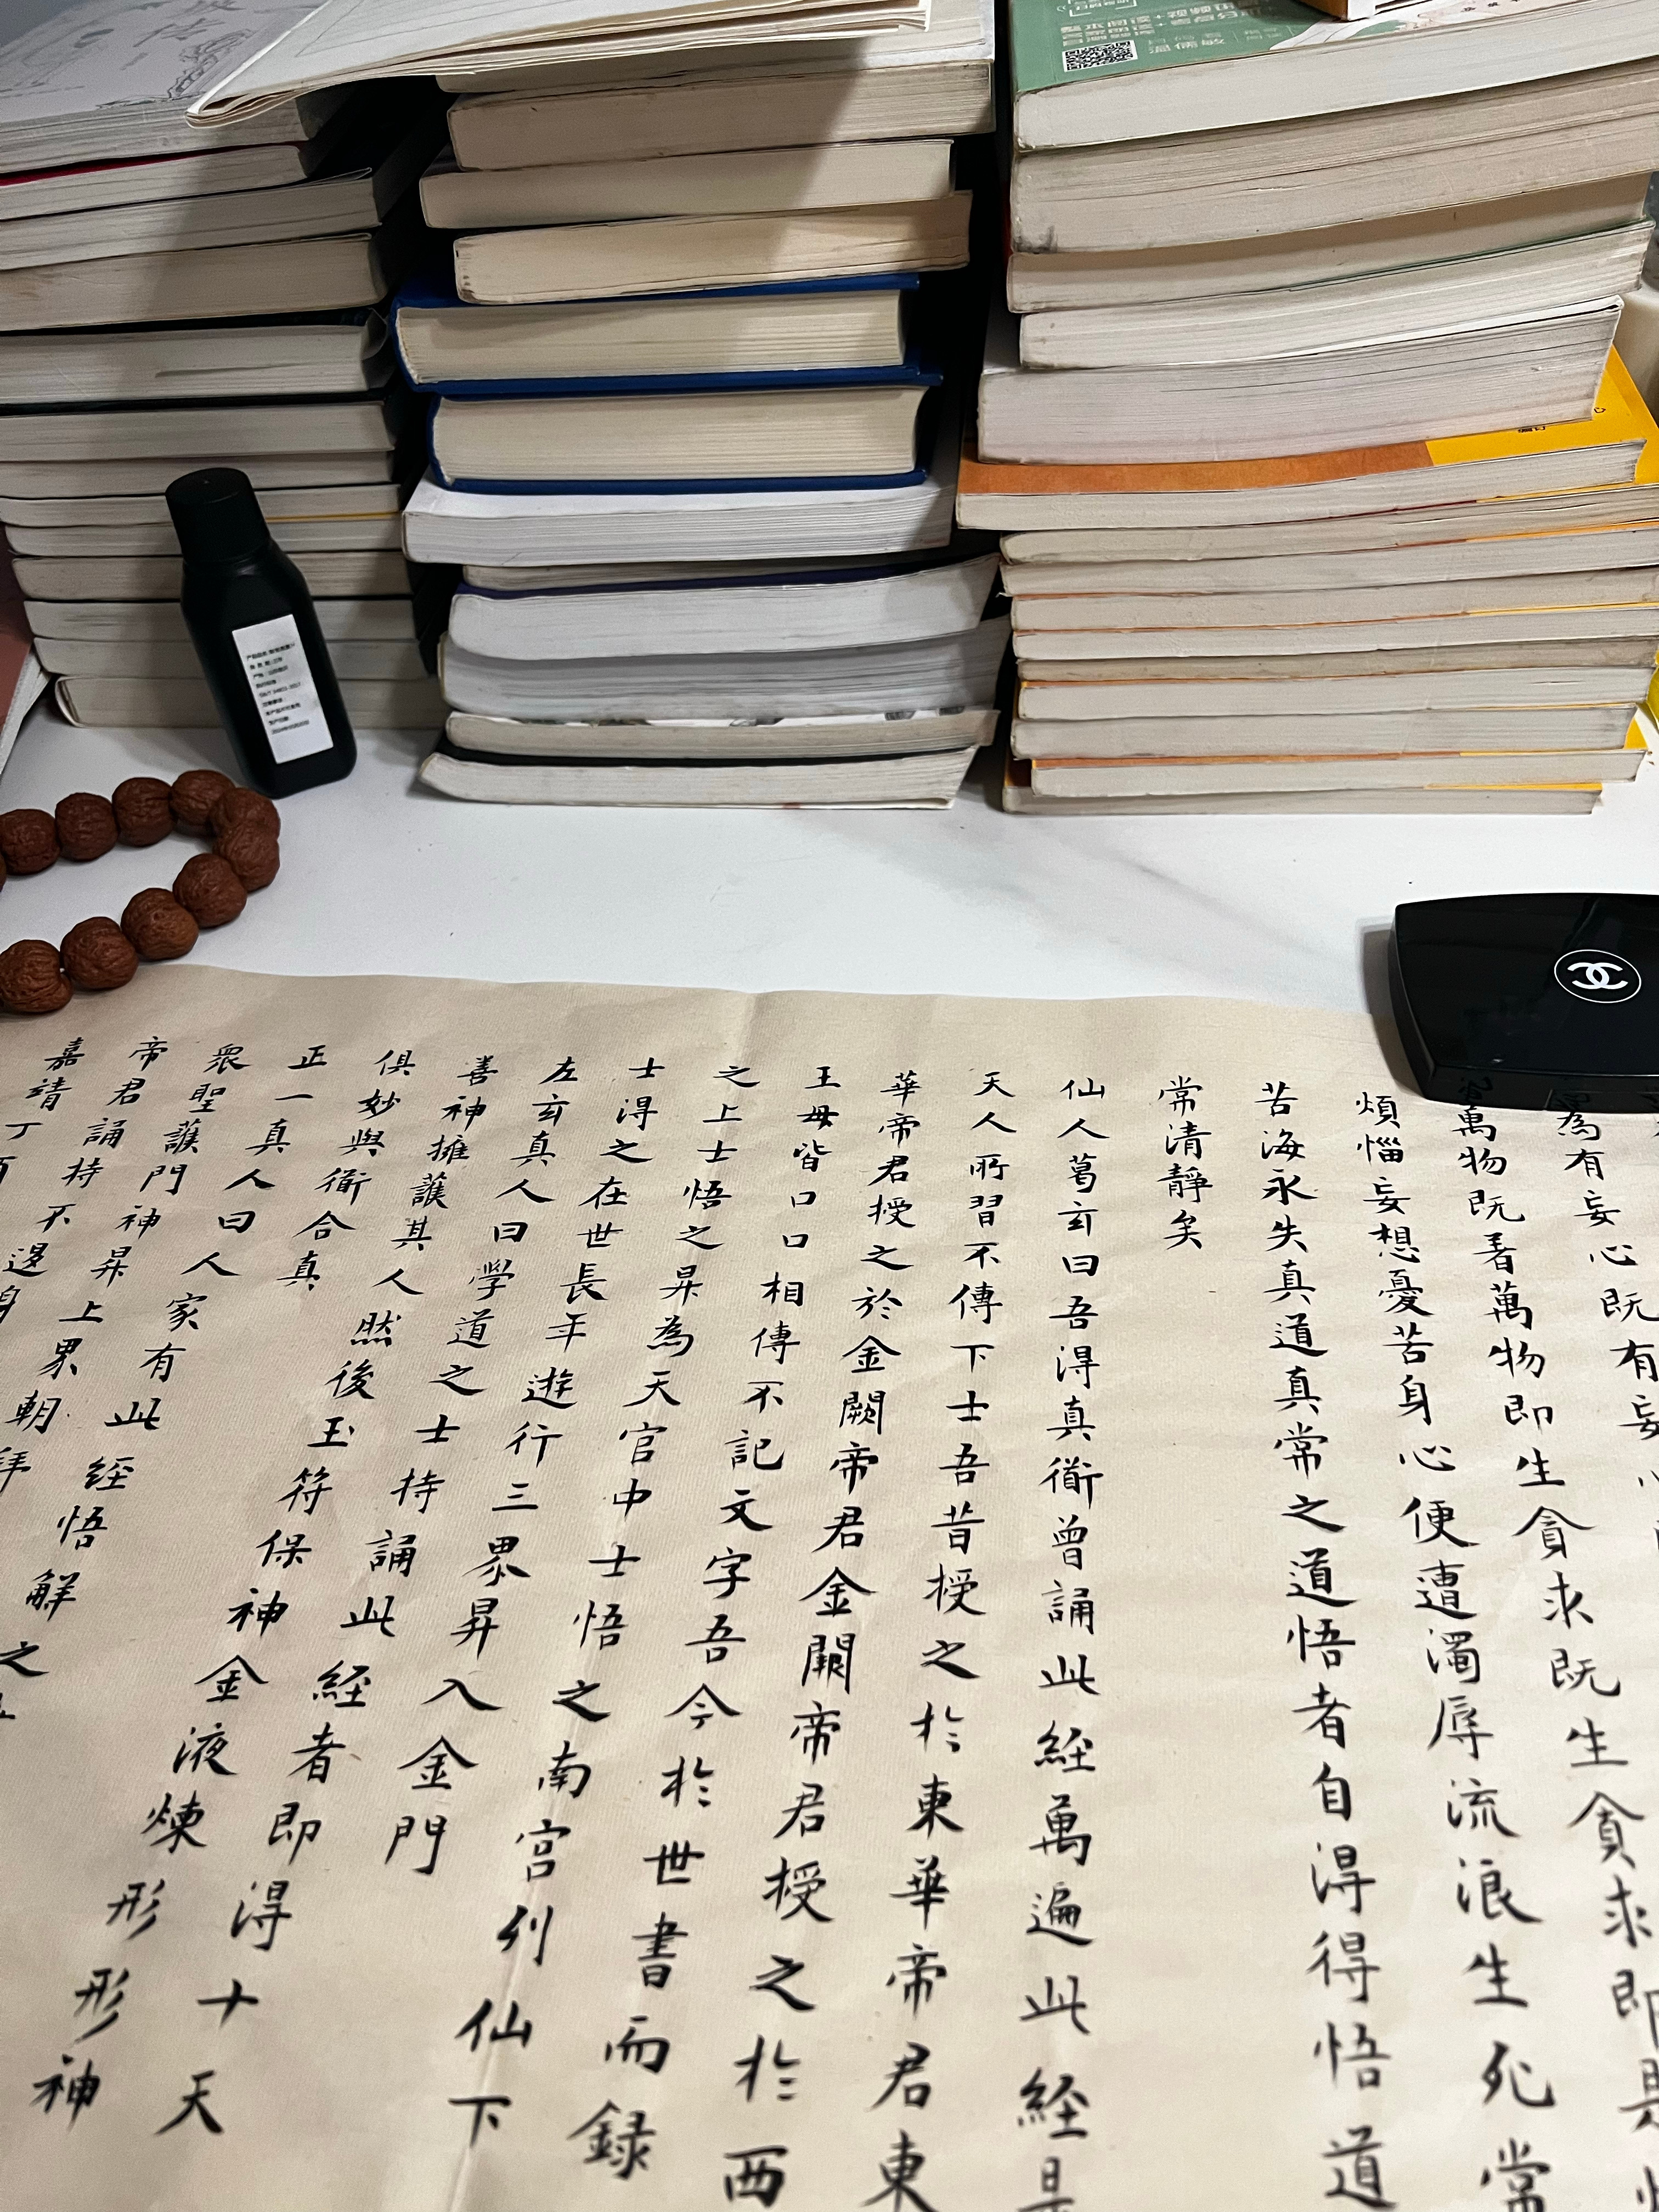 為有妄心既有妄
萬物既着萬物即生貪求既生貪求即是
煩惱妄想憂苦身心便遭濁辱流浪生死常
苦海永失真道真常之道悟者自得得悟道
常清靜矣
仙人葛玄曰吾得真衜曾誦此經萬遍此經是
天人所習不傳下士吾昔授之於東華帝君東
華帝君授之於金闕帝君金闕帝君授之於西
王母皆口口相傳不記文字吾今於世書而錄
之上士悟之昇為天官中士悟之南宮列仙下
士得之在世長年遊行三界昇入金門
左玄真人曰學道之士持誦此經者即得十天
善神擁護其人然後玉符保神金液煉形形神
俱妙與衜合真
正一真人曰人家有此經悟解之
衆聖護門神昇上界朝拜
帝君誦持不退身
嘉靖丁